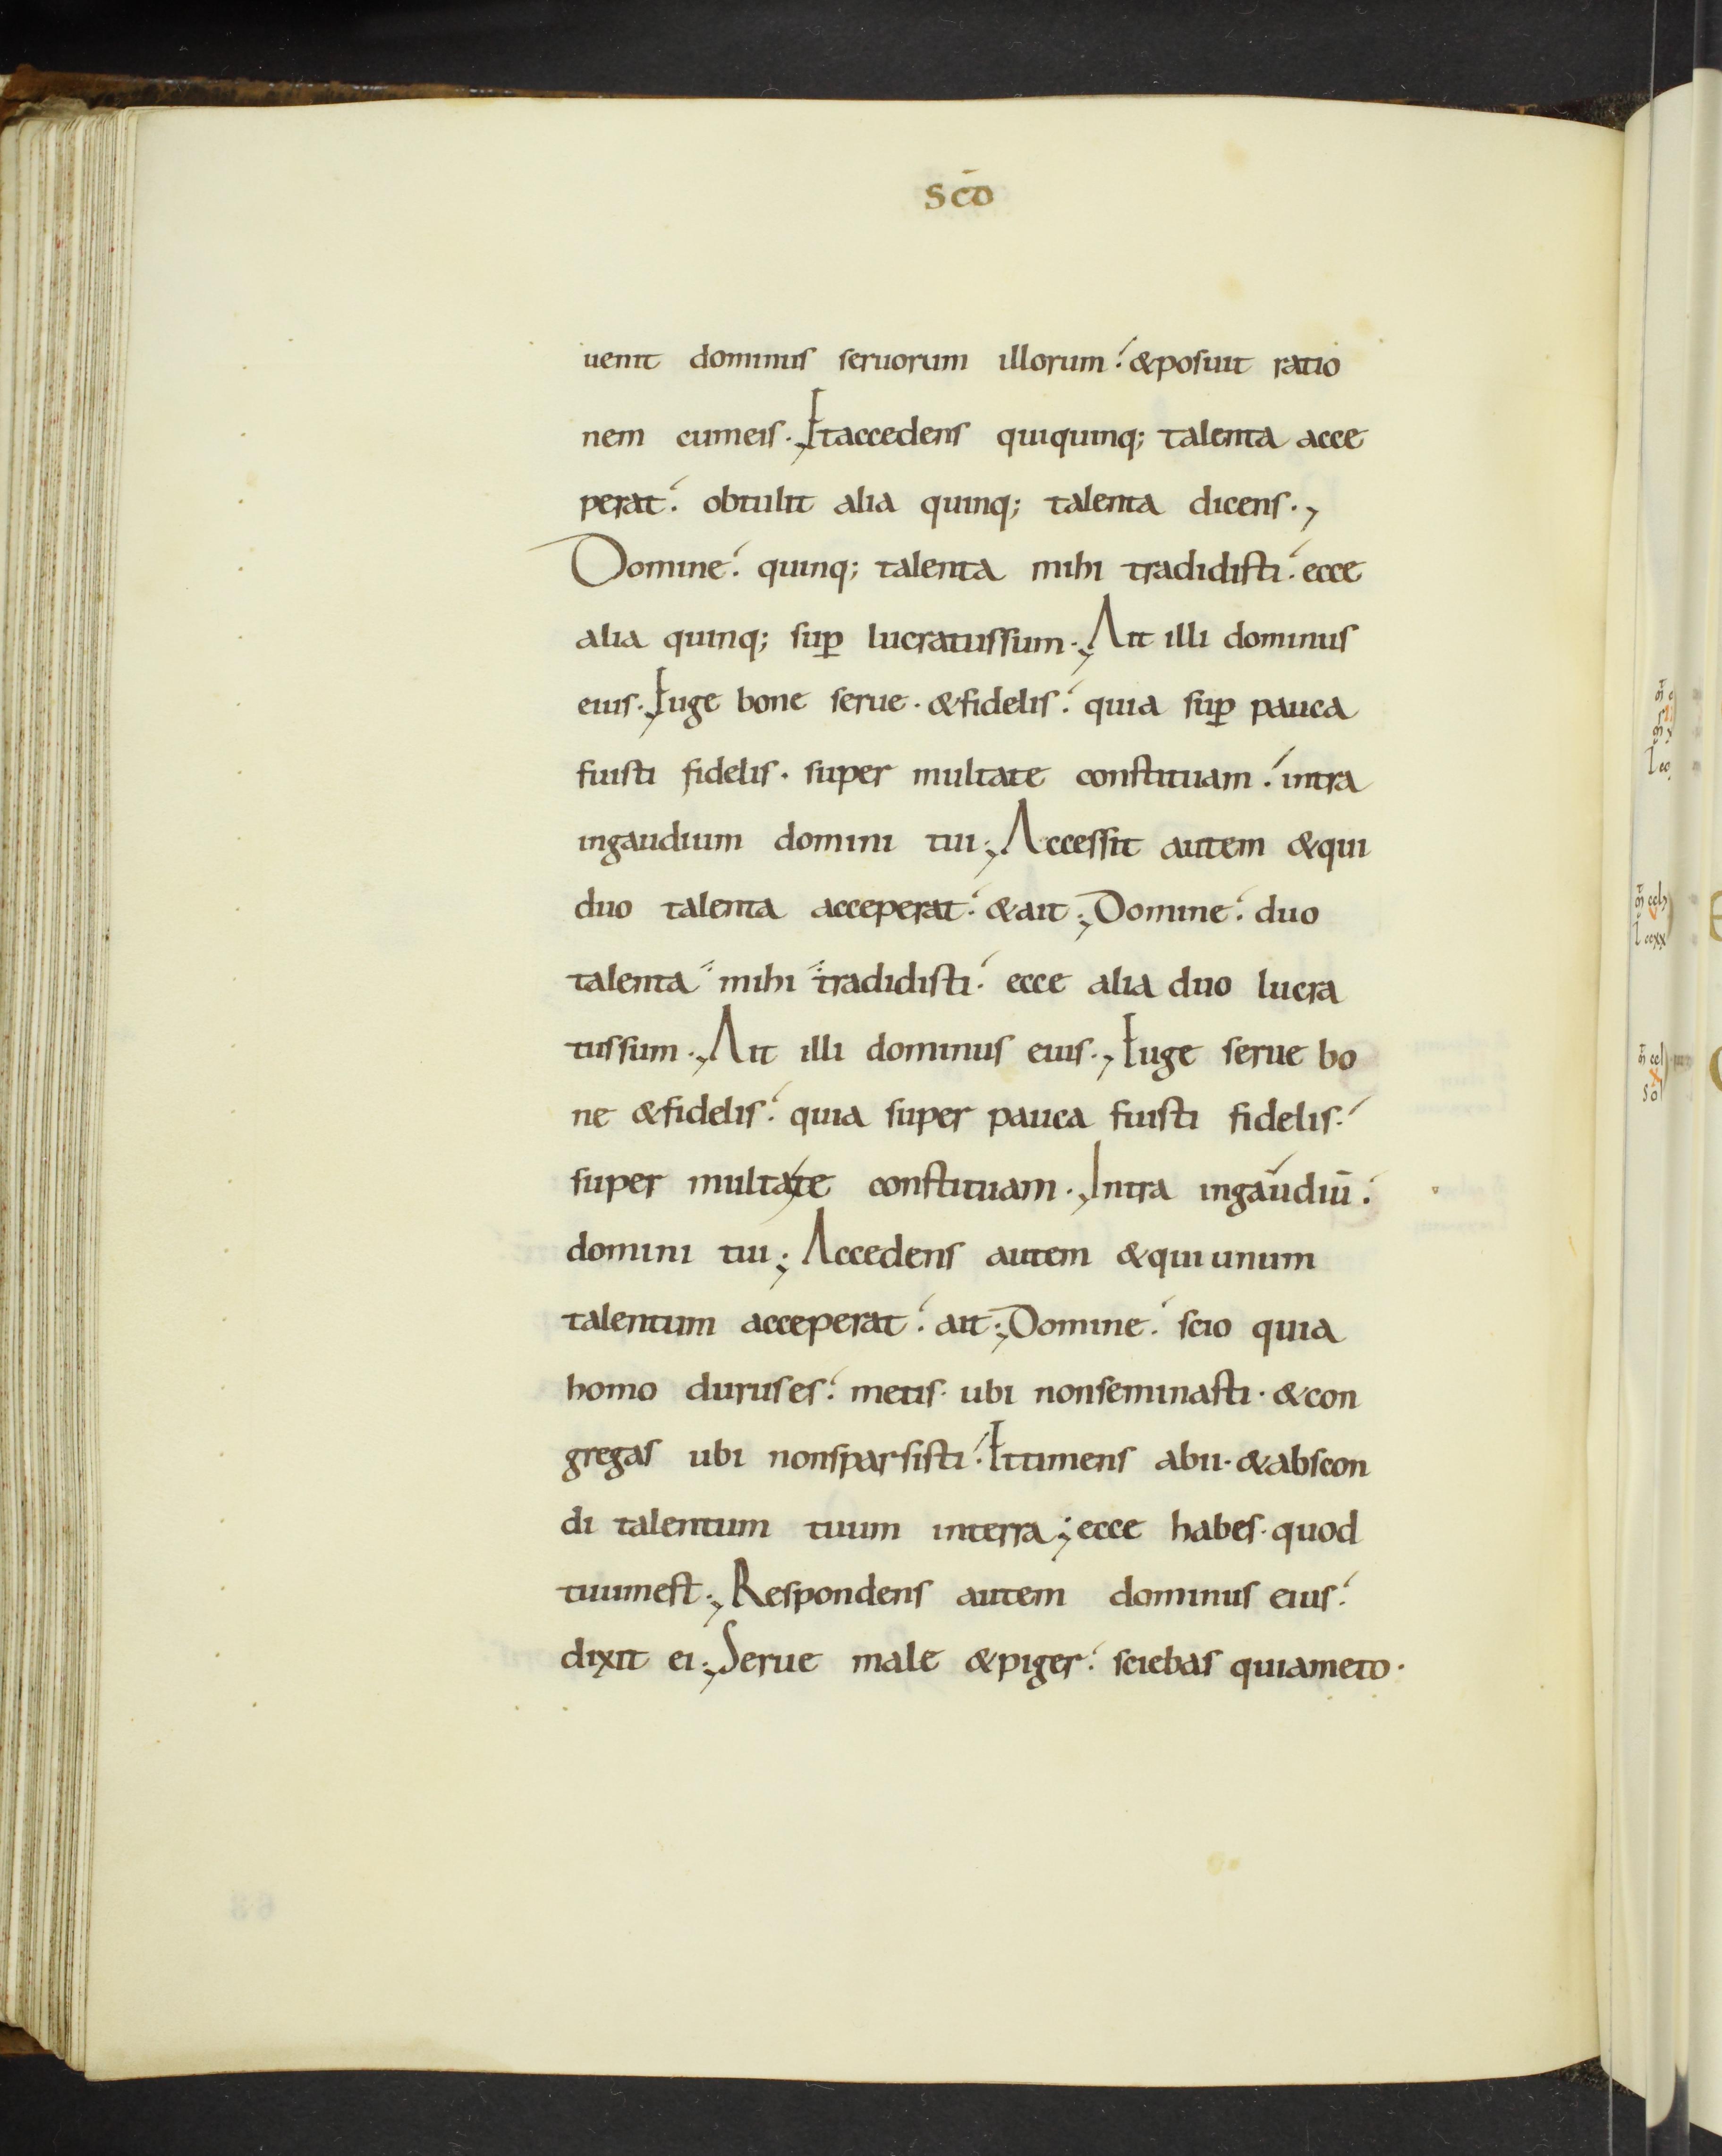 scō
uenit dominus seruorum illorum. &posuit ratio
nem cumeis. Etaccedens quiquinq; talenta acce
perat. obtulit alia quinq; talenta dicens.,
Domine. quinq; talenta mihi tradidisti. ecce
alia quinq; sup̲ lucratussum., Ait illi dominus
eius., Euge bone serue. &fidelis. quia sup̲ pauca
fuisti fidelis. super multate constituam. intra
ingaudium domini tui., Accessit autem &qui
duo talenta acceperat. &ait., Domine. duo
talenta mihi tradidisti. ecce alia duo lucra
tussum., Ait illi dominus eius., Euge serue bo
ne &fidelis. quia super pauca fuisti fidelis.
super multa/te constituam., Intra ingaudiū.
domini tui., Accedens autem &qui unum
talentum acceperat. ait., Domine. scio quia
homo duruses. metis. ubi nonseminasti. &con
gregas ubi nonsparsisti. Ettimens abii. &abscon
di talentum tuum interra; ecce habes. quod
tuumest., Respondens autem dominus eius.
dixit ei., Serue male &piger. sciebas quiameto.